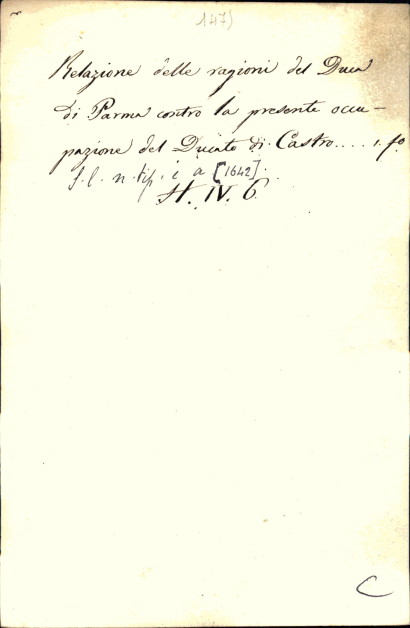 147)
Relazione delle ragioni del Duca
di Parma contro la presente occu-
pazione del Ducato di Castro.... 1. fo
s. l. n. tip. e a [1642].
H. IV. 6
C